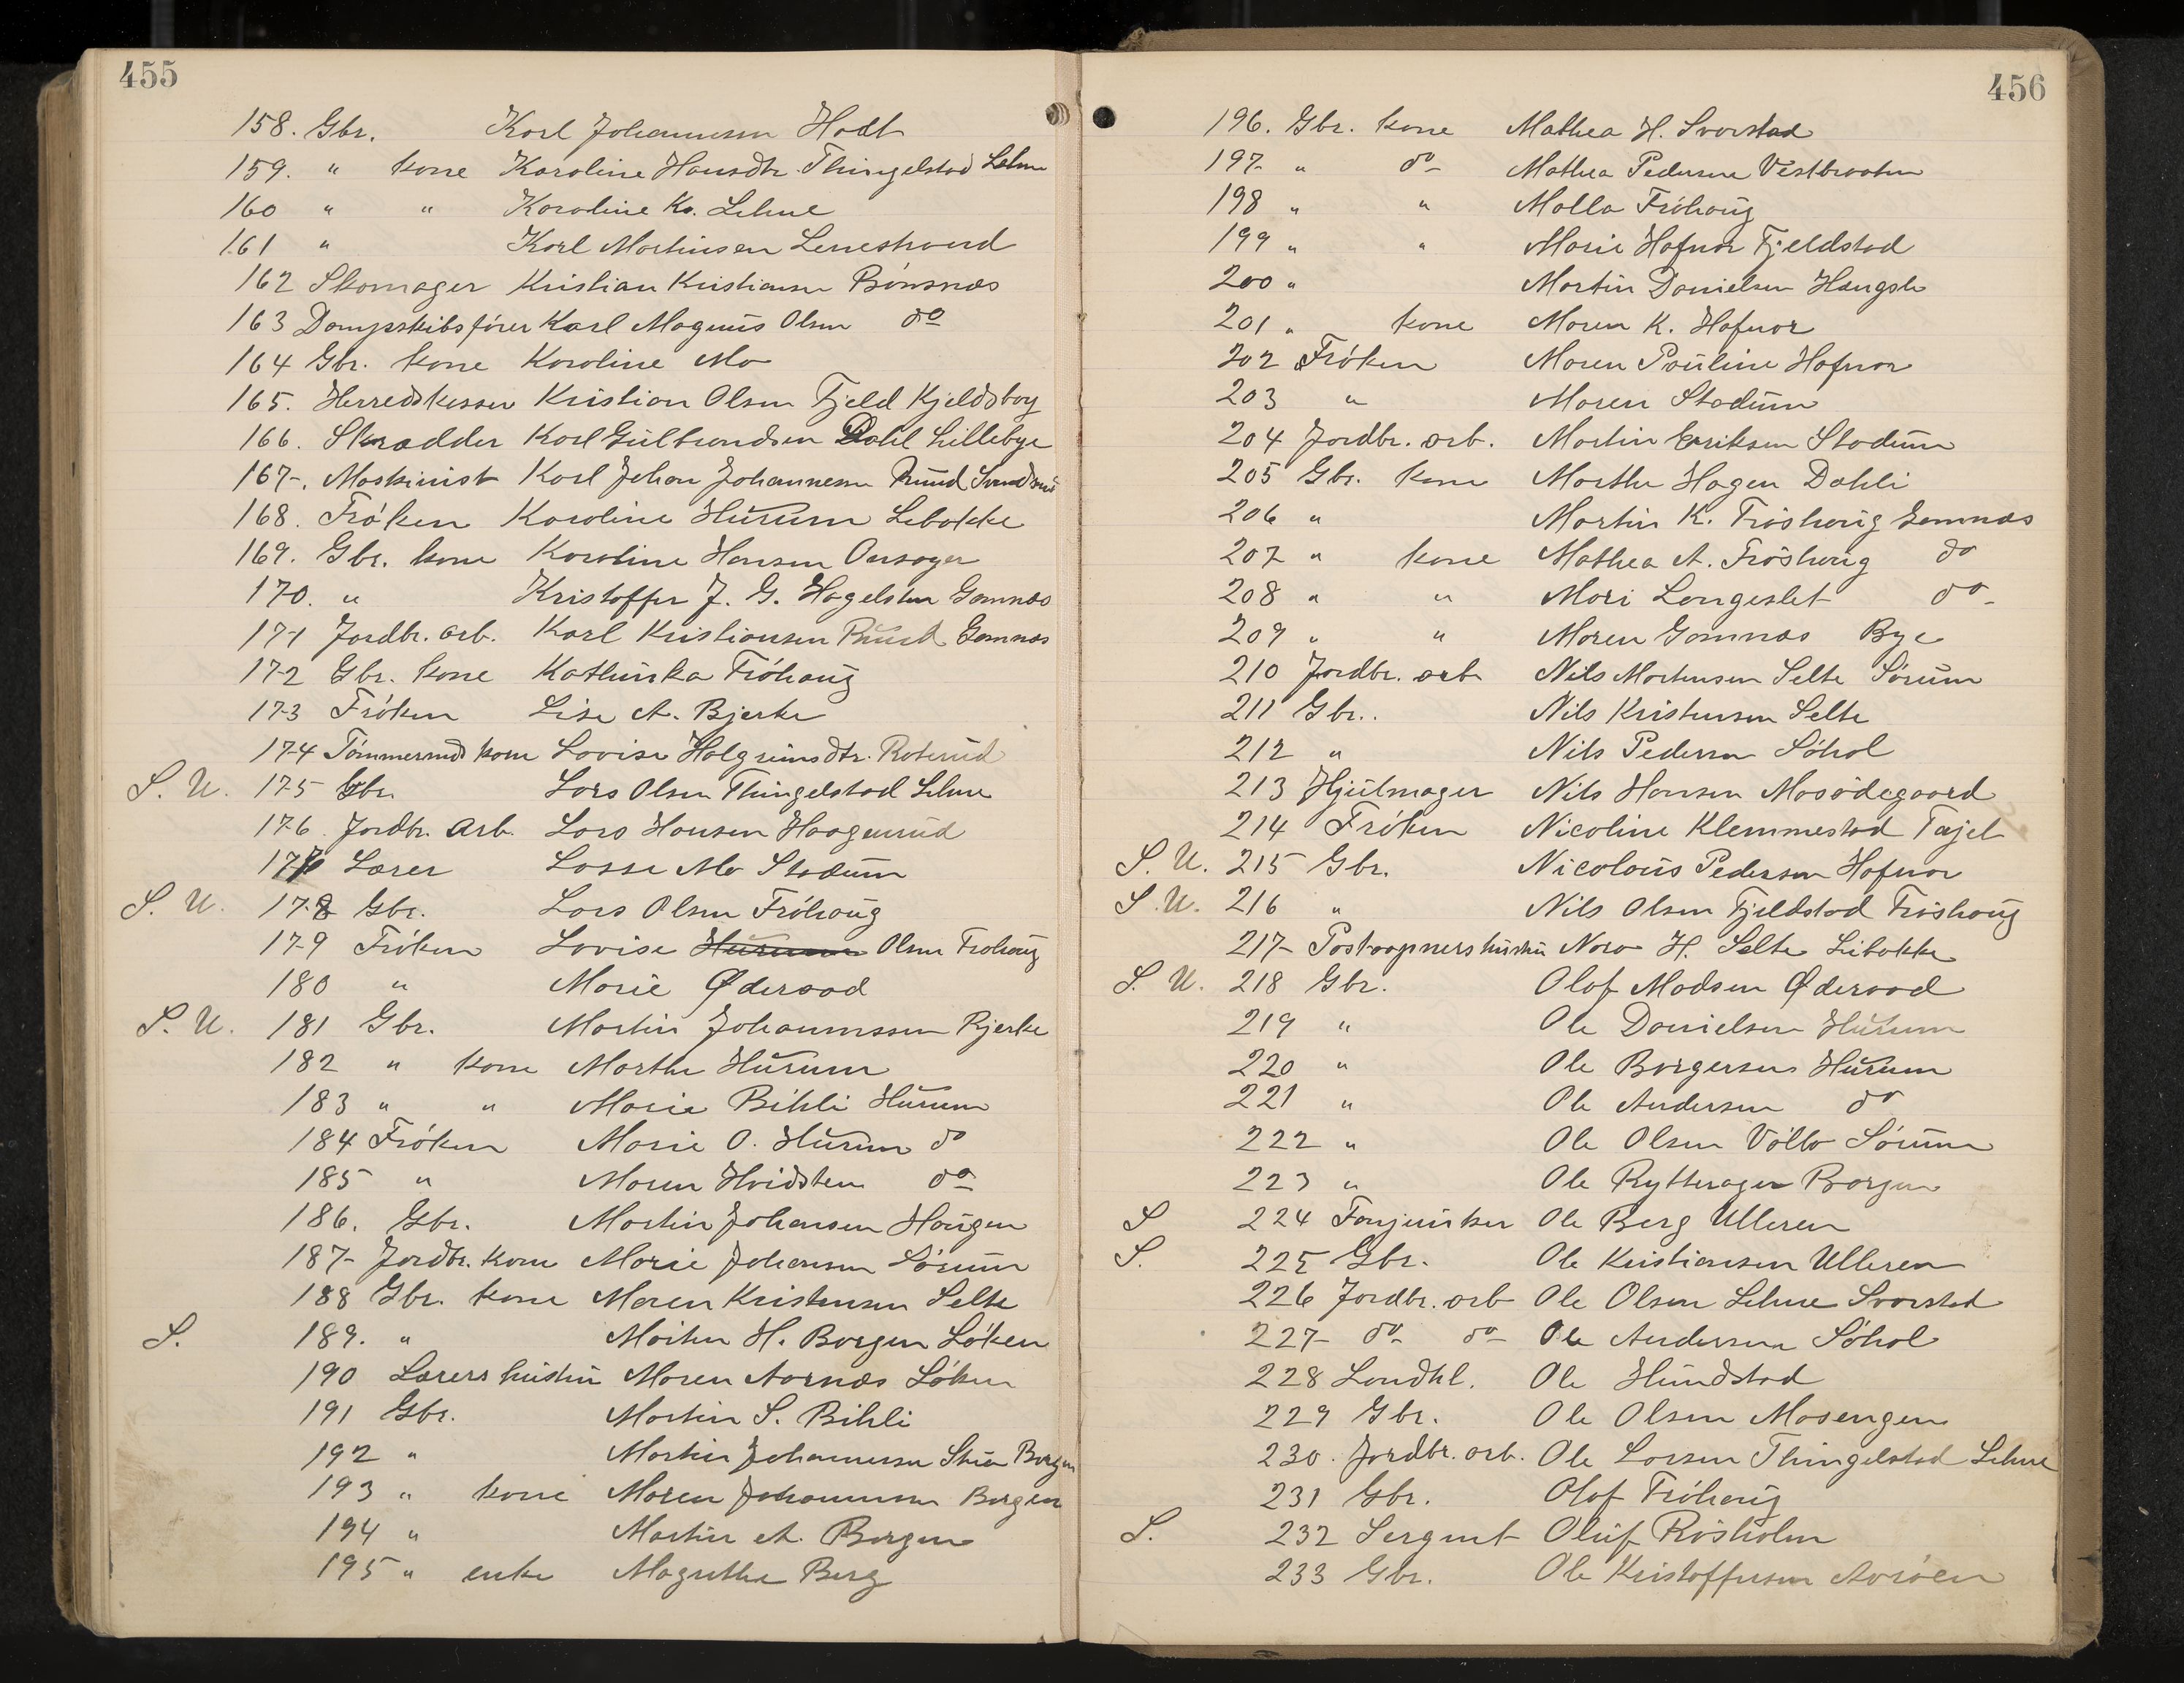 455
158. Gbr. Karl Johannesen Hadt
159. " kone Karoline Hansdtr. Thingelstad Lehne
160 " " Karoline Kr. Lehne
161 " Karl Martinsen Lenestrand
162 Skomager Kristian Kristiansen Bönsnæs
163 Dampskibsförer Karl Magnus Olsen do
164 Gbr. kone Karoline Mo
165. Herredskasser Kristian Olsen Fjeld Kjeldsberg
166. Skrædder Karl Gulbrandsen Dahl Lillebye
167. Maskinist Karl Johan Johannesen Ruud
168. Fröken Karoline Hurum Libakke
169. Gbr. kone Karoline Hansen Onsager
170. " Kristoffer J. G. Hagelsten Gomnæs
171 Jordbr. arb. Karl Kristiansen Ruud Gomnæs
172 Gbr. kone Kathinka Fröhaug
173 Fröken Lise A. Bjerke
174 Tömmermds kone Lovise Halgrimsdtr. Roterud
S. U. 175 Gbr. Lars Olsen Thingelstad Lehne
176. Jordbr. Arb. Lars Hansen Haagenrud
177 Lærer Lasse Mo Stadum
S. U. 178 Gbr. Lars Olsen Fröhaug
179 Fröken Lovise Hurum Olsen Frohaug
180 " Marie Øderaad
S. U. 181 Gbr. Martin Johannessen Bjerke
182 " kone Marthe Hurum
183 " " Marie Bihli Hurum
184 Fröken Marie O. Hurum do
185 " Maren Hvidsten do
186. Gbr. Martin Johansen Haugen
187 Jordbr. kone Marie Johansen Sörum
188 Gbr. kone Maren Kristensen Selte
S. 189. " Morten H. Borgen Löken
190 Lærers hustru Maren Aarnæs Löken
191 Gbr. Martin S. Bihli
192 " Martin Johannesen Stua Borgen
193 " kone Maren Johannesen Borgen
194 " Martin A. Borgen
195 " enke Magrethe Berg
456
196. Gbr. kone Mathea H. Svarstad
197 " do Mathea Pedersen Vestbraaten
198 " " Malla Fröhaug
199 " " Marie Hafnor Fjeldstad
200 " Martin Danielsen Hængsle
201 " kone Maren K. Hafnor
202 Fröken Maren Pauline Hafnor
203 " Maren Stadum
204 Jordbr. arb. Martin Eriksen Stadum
205 Gbr. kone Marthe Hagen Dahli
206 " Martin K. Fröshaug Gomnæs
207 " kone Mathea A. Fröshaug do
208 " " Mari Langeslet do
209 " " Maren Gomnæs Bye
210 Jordbr. arb Nils Mortensen Selte Sörum
211 Gbr. Nils Kristensen Selte
212 " Nils Pedersen Söhol
213 Hjulmager Nils Hansen Mosödegaard
214 Fröken Nicoline Klemmestad Tajet
S. U. 215 Gbr. Nicolaus Pedersen Hafnor
S. U. 216 " Nils Olsen Fjeldstad Fröshaug
217 Postaapners hustru Nora H. Selte Libakke
S. U. 218 Gbr. Olaf Madsen Øderaad
219 " Ole Danielsen Hurum
220 " Ole Borgersen Hurum
221 " Ole Andersen do
222 " Ole Olsen Völlo Sörum
223 " Ole Rytterager Borgen
S 224 Fanjunker Ole Berg Ulleren
S. 225 Gbr. Ole Kristiansen Ulleren
226 Jordbr. arb Ole Olsen Lehne Svarstad
227 do do Ole Andersen Söhol
228 Landhl. Ole Hundstad
229 Gbr. Ole Olsen Mosengen
230. Jordbr. arb. Ole Larsen Thingelstad Lehne
231 Gbr. Olaf Fröhaug
S. 232 Sergent Oluf Rösholm
233 Gbr. Ole Kristoffersen Aaröen